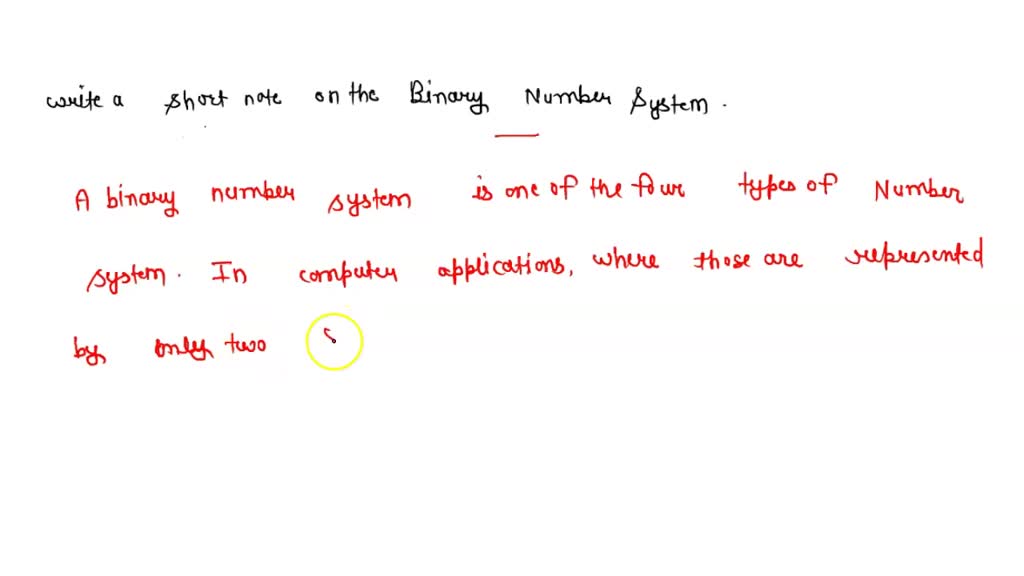 write a short note on the Binary Number System.
A binary number system is one of the four types of Number
system. In computer applications, where those are represented
by only two s